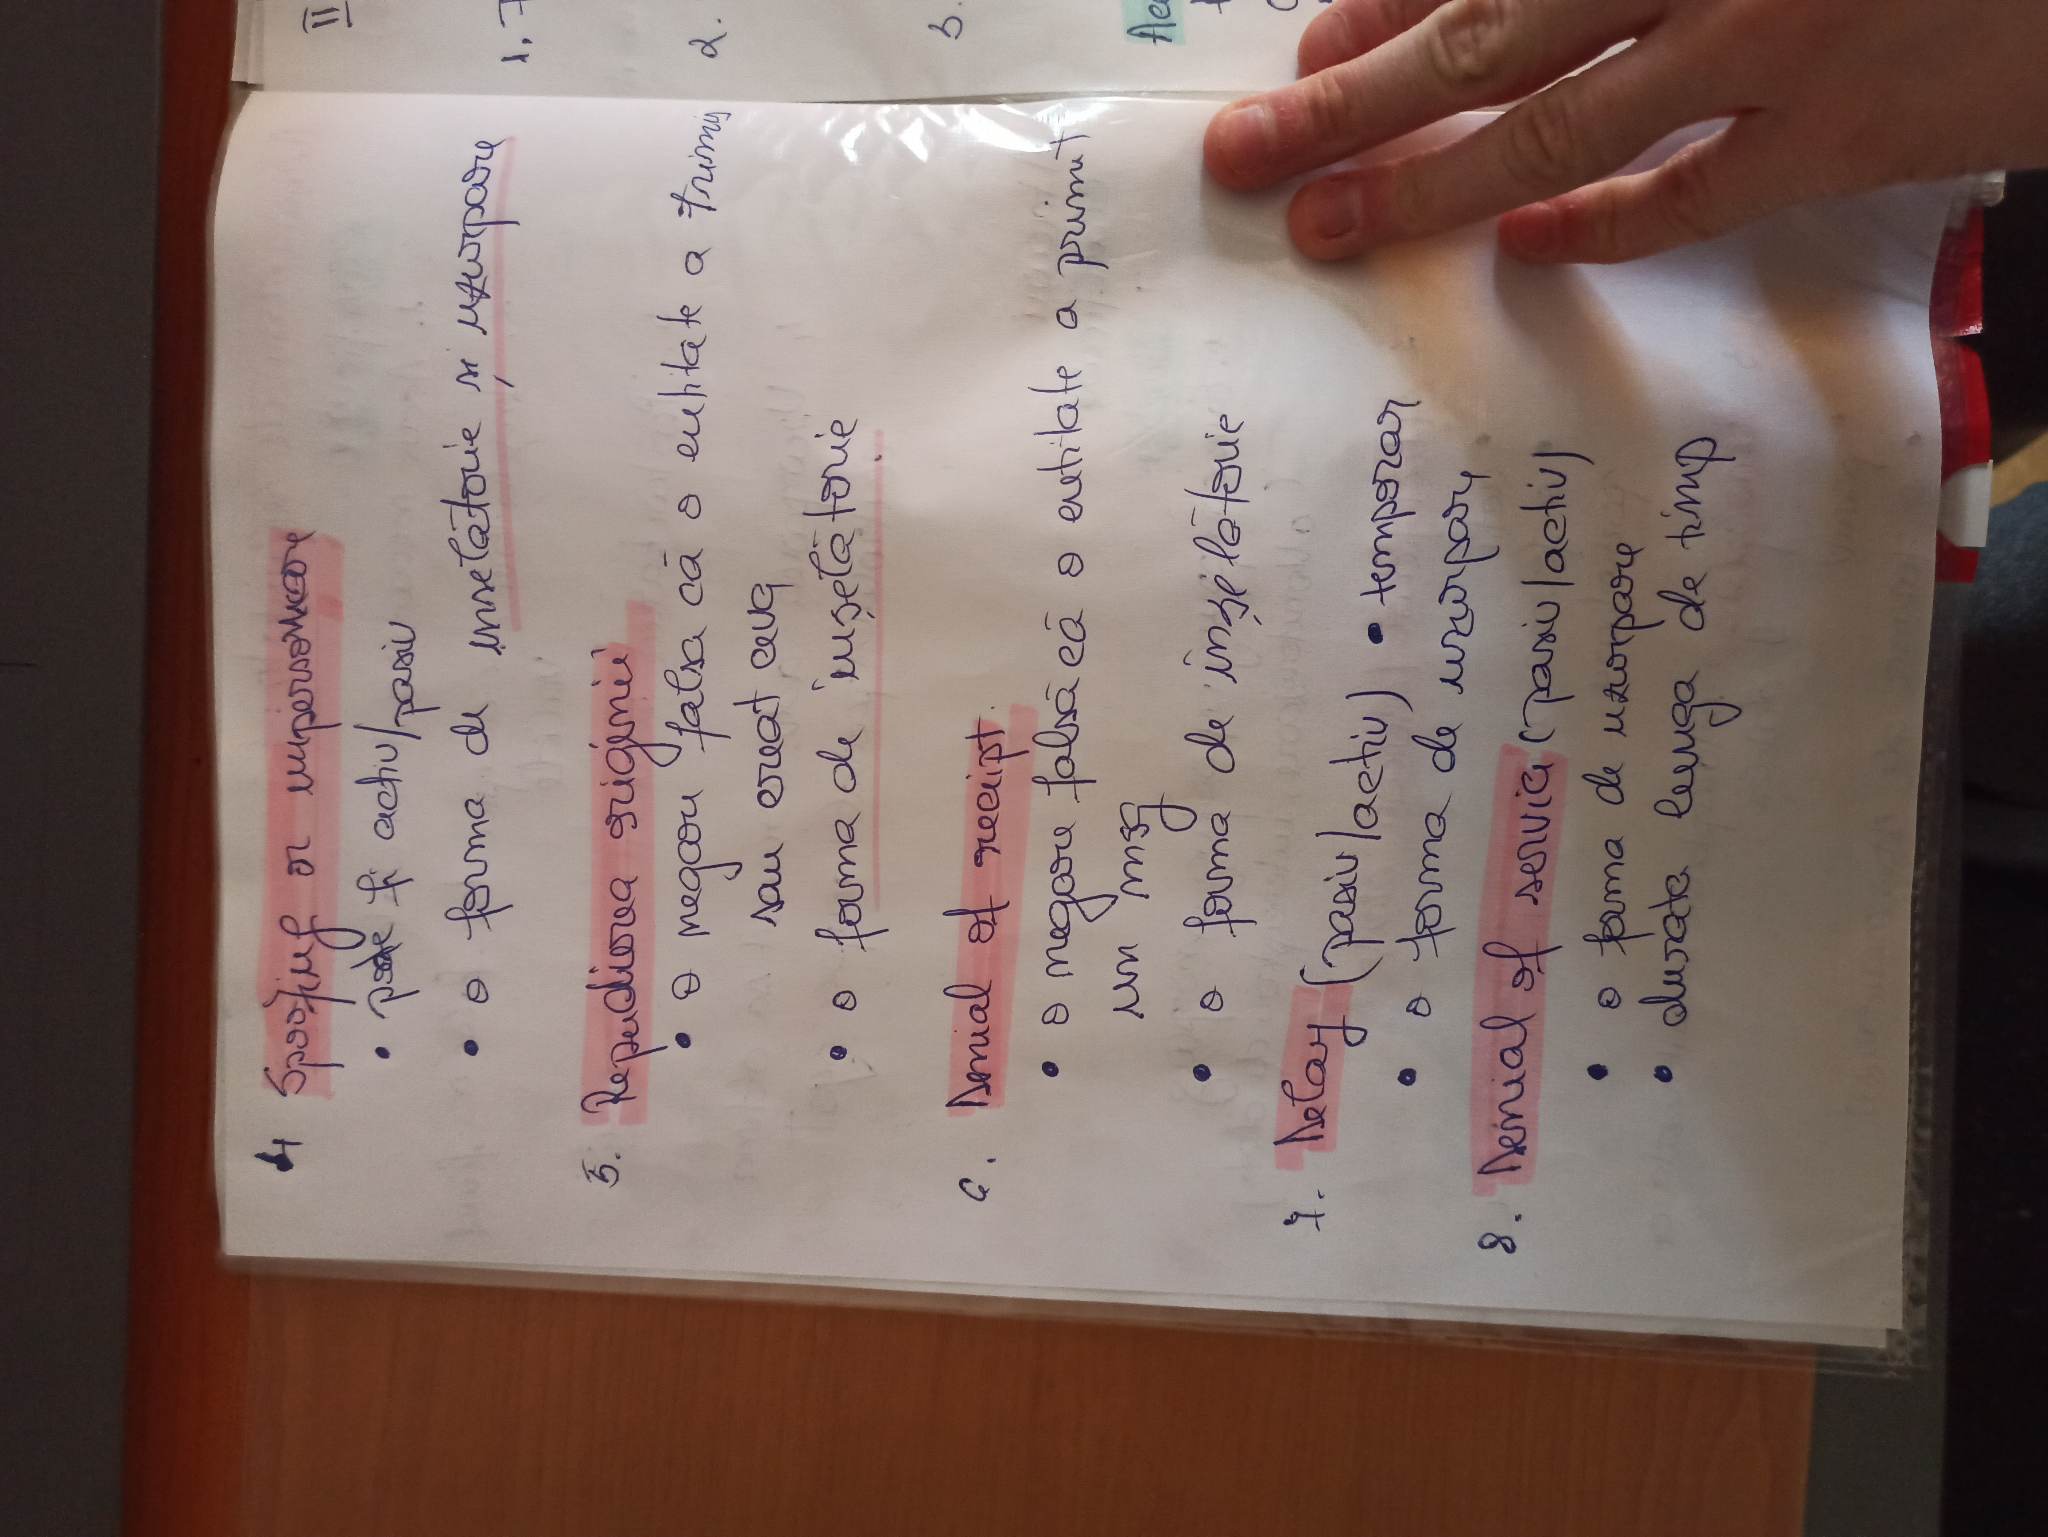 4 Spoofing or impersonare
• poate fi activ/pasiv
• o forma de inselătorie și uzurpare
5. Repudierea originii
• o negare falsa că o entitate a trimis
sau creat ceva
• o forma de înșelătorie
6. Denial of receipt
• o negare falsă că o entitate a primit
un msg
• o forma de înșelătorie
7. Delay (pasiv/activ) • temporar
• o forma de uzurpare
8. Denial of service (pasiv/activ)
• o forma de uzurpare
• durata lunga de timp
II
1.
2.
3.